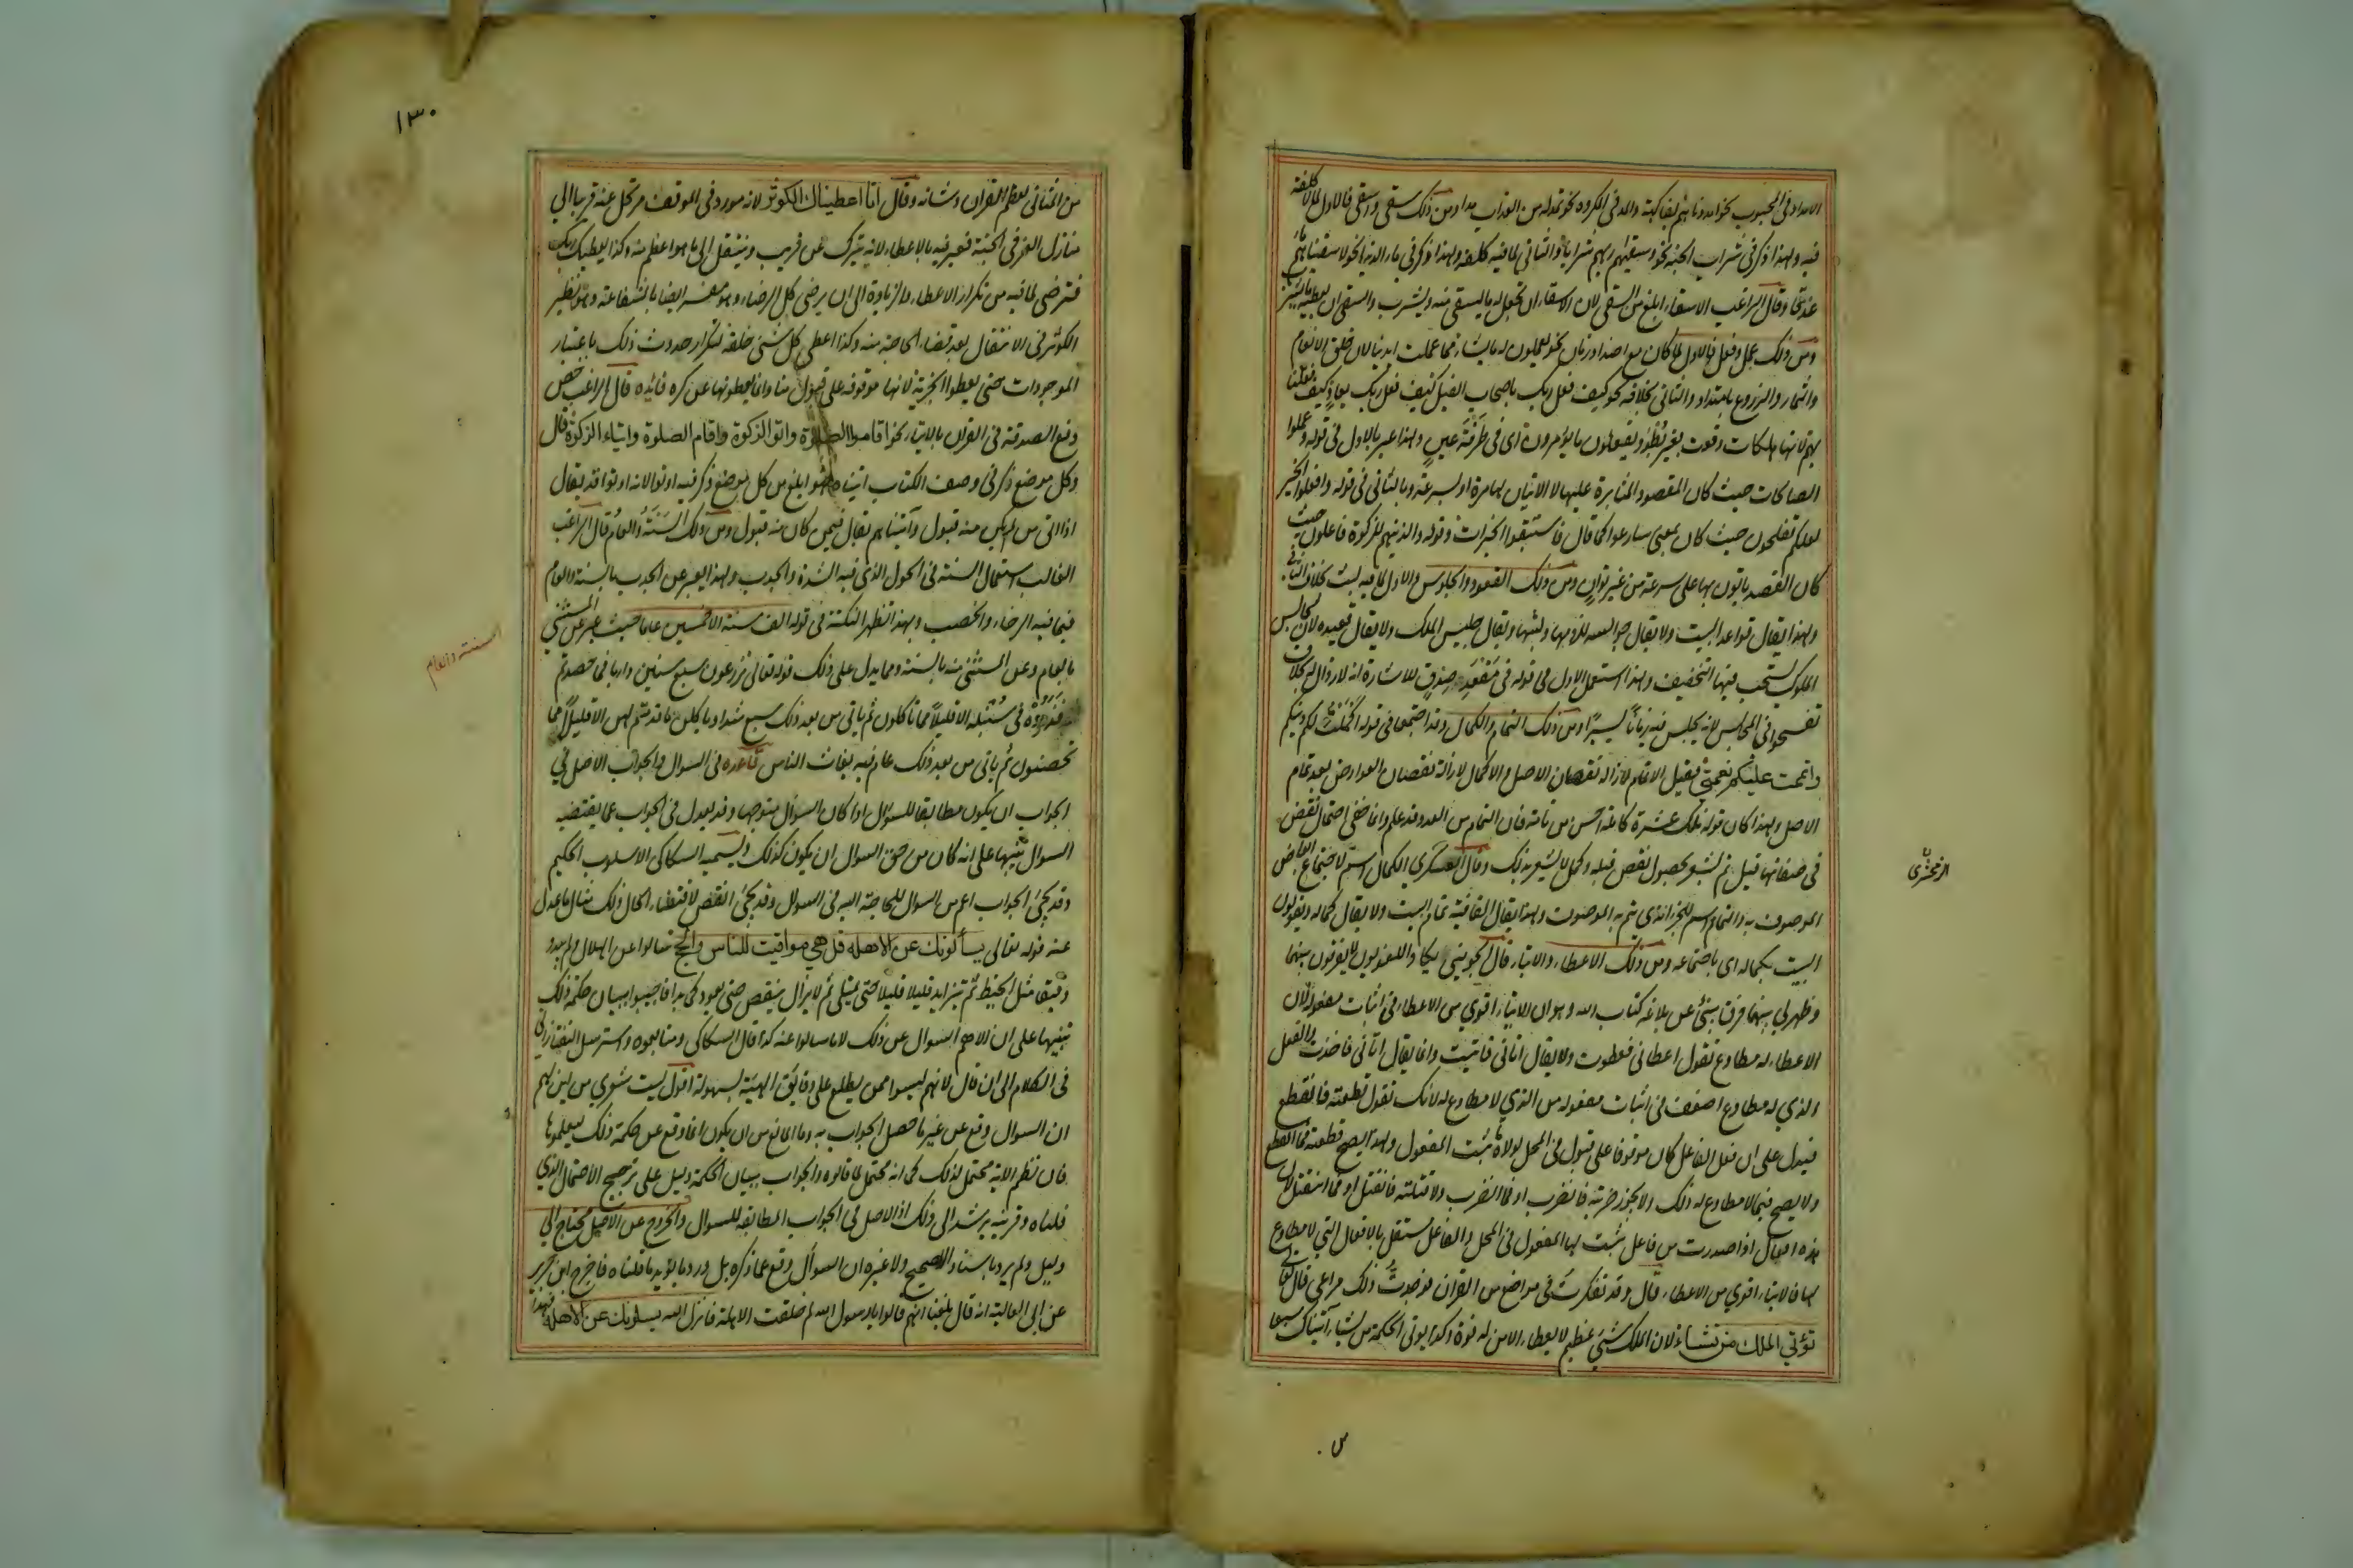 الامداد فى المحبوب نحو امددناهم بفاكهة والمد فى المكروه نحو نمد له من العذاب مدا ومن ذلك سقى واسقى فالاول لما لا كلفة
فيه ولهذا ذكر فى شراب الجنة نحو وسقيهم ربهم شرابا والثانى لما فيه كلفة ولهذا ذكر فى ماء الدنيا نحو لاسقيناهم ماء
غدقا وقال الراغب الاسقاء ابلغ من السقى لان الاسقاء ان تجعل له ما يسقى منه ويشرب والسقى ان يعطيه ما يشرب
ومن ذلك عمل وفعل فالاول لما كان مع امتداد زمان نحو يعملون له ما يشاء مما عملت ايدينا لان خلق الانعام
والثمار والزروع بامتداد والثانى بخلافه نحو كيف فعل ربك باصحاب الفيل كيف فعل ربك بعاد وكيف فعلنا
بهم لانها هلكات وقعت بغير بطؤ ويفعلون ما يؤمرون اى فى طرفة عين ولهذا عبر بالاول فى قوله وعملوا
الصالحات حيث كان المقصود المثابرة عليها لا الاتيان بها مرة او بسرعة وبالثانى فى قوله وافعلوا الخير
لعلكم تفلحون حيث كان بمعنى سارعوا كما قال فاستبقوا الخيرات وقوله والذينهم للزكوة فاعلون حيث
كان القصد ياتون بها على سرعة من غير توان ومن ذلك القعود والجلوس والاول لما فيه لبث بخلاف الثانى
ولهذا يقال قواعد البيت ولا يقال جوالسه للزومها ولبثها ويقال جليس الملك ولا يقال قعيده لان مجالس
الملوك يستحب فيها التخفيف ولهذا استعمل الاول فى قوله فى مقعد صدق للاشارة انه لا زوال له بخلاف
تفسحوا فى المجالس لانه يجلس فيه زمانا يسيرا ومن ذلك التمام والكمال وقد اجتمعا فى قوله اكملت لكم دينكم
واتممت عليكم نعمتى فقيل الاتمام لازالة نقصان الاصل والاكمال لازالة نقصان العوارض بعد تمام
الاصل ولهذا كان قوله تلك عشرة كاملة احسن من تامة فان التمام من العدد قد علم وانما نفى احتمال نقص
فى صفاتها قيل تم يشعر بحصول نقص قبله وكمل لا يشعر بذلك وقال العسكرى الكمال اسم لاجتماع ابعاض
الموصوف به والتمام اسم للجزء الذى يتم به الموصوف ولهذا يقال القافية تمام البيت ولا يقال كماله ويقولون
البيت بكماله اى باجتماعه ومن ذلك الاعطاء والايتاء قال الجوينى لا يكاد اللغويون يفرقون بينهما
وظهر لى بينهما فرق ينبئ عن بلاغة كتاب الله وهو ان الايتاء اقوى من الاعطاء فى اثبات مفعوله لان
الاعطاء له مطاوع تقول اعطانى فعطوت ولا يقال اتانى فاتيت وانما يقال اتانى فاخذت والفعل
الذى له مطاوع اضعف فى اثبات مفعوله من الذى لا مطاوع له لانك تقول قطعته فانقطع
فيدل على ان فعل الفاعل كان موقوفا على قبول فى المحل لولاه ما ثبت المفعول ولهذا يصح قطعته فما انقطع
ولا يصح فيما لا مطاوع له ذلك ولا يجوز ضربته فانضرب او فما انضرب ولا قتلته فانقتل او فما انقتل لان
هذه افعال اذا صدرت من فاعل ثبت لها المفعول فى المحل والفاعل مستقل بالافعال التى لا مطاوع
لها فالايتاء اقوى من الاعطاء قال وقد تفكرت فى مواضع من القران فوجدت ذلك مراعى قال تعالى
تؤتى الملك من تشاء لان الملك شئ عظيم لا يعطاه الا من له قوة وكذا يوتى الحكمة من يشاء آتيناك سبعا
الزمخشرى
١٣٠
من المثانى لعظم القران وشانه وقال انا اعطيناك الكوثر لانه مورود فى الموقف مرتحل عنه قريبا الى
منازل العز فى الجنة فعبر فيه بالاعطاء لانه يترك عن قريب وينتقل الى ما هو اعظم منه وكذا يعطيك ربك
فترضى لما فيه من تكرار الاعطاء والزيادة الى ان يرضى كل الرضاء وهو مفسر ايضا بالشفاعة وهو نظير
الكوثر فى الانتقال بعد قضاء الحاجة منه وكذا اعطى كل شئ خلقه لتكرار حدوث ذلك باعتبار
الموجودات حتى يعطوا الجزية لانها موقوفة على قبول منا وانما يعطونها عن كره فائدة قال الراغب خص
دفع الصدقة فى القران بالايتاء نحو اقاموا الصلاة واتوا الزكوة واقام الصلوة وايتاء الزكوة قال
وكل موضع ذكر فى وصف الكتاب اتيناه فهو ابلغ من كل موضع ذكر فيه اوتوا لانه اوتوا قد يقال
اذا اتى من لم يكن منه قبول وآتيناهم يقال فيمن كان منه قبول ومن ذلك السنة والعام قال الراغب
الغالب استعمال السنة فى الحول الذى فيه الشدة والجدب ولهذا يعبر عن الجدب بالسنة والعام
فيما فيه الرخاء والخصب وبهذا تظهر النكتة فى قوله الف سنة الا خمسين عاما حيث عبر عن المستثنى
بالعام وعن المستثنى منه بالسنة ومما يدل على ذلك قوله تعالى تزرعون سبع سنين دابا فما حصدتم
فذروه فى سنبله الا قليلا مما تاكلون ثم ياتى من بعد ذلك سبع شداد ياكلن ما قدمتم لهن الا قليلا مما
تحصنون ثم ياتى من بعد ذلك عام فيه يغاث الناس قاعدة فى السوال والجواب الاصل فى
الجواب ان يكون مطابقا للسوال اذا كان السوال متوجها وقد يعدل فى الجواب عما يقتضيه
السوال تنبيها على انه كان من حق السوال ان يكون كذلك ويسميه السكاكى الاسلوب الحكيم
وقد يجئ الجواب اعم من السوال للحاجة اليه فى السوال وقد يجئ انقص لاقتضاء الحال ذلك مثال ما عدل
عنه قوله تعالى يسألونك عن الاهلة قل هى مواقيت للناس والحج سالوا عن الهلال لم يبدو
دقيقا مثل الخيط ثم يتزايد قليلا قليلا حتى يمتلى ثم لا يزال ينقص حتى يعود كما بدا فاجيبوا ببيان حكمة ذلك
تنبيها على ان الاهم السوال عن ذلك لا ما سالوا عنه كذا قال السكاكى ومتابعوه واسترسل التفتازانى
فى الكلام الى ان قال لانهم ليسوا ممن يطلع على دقائق الهيئة بسهولة اقول ليت شعرى من اين لهم
ان السوال وقع عن غير ما حصل الجواب به وما المانع من ان يكون انما وقع عن حكمة ذلك ليعلموها
فان نظم الاية محتمل لذلك كما انه محتمل لما قالوه والجواب ببيان الحكمة دليل على ترجيح الاحتمال الذى
قلناه وقرينة يرشد الى ذلك اذ الاصل فى الجواب المطابقة للسوال والخروج عن الاصل يحتاج الى
دليل ولم يرد باسناد لا صحيح ولا غيره ان السوال وقع عما ذكره بل ورد ما يؤيد ما قلناه فاخرج ابن جرير
عن ابى العالية انه قال بلغنا انهم قالوا يا رسول الله لم خلقت الاهلة فانزل الله يسلونك عن الاهلة فهذا
السنة والعام